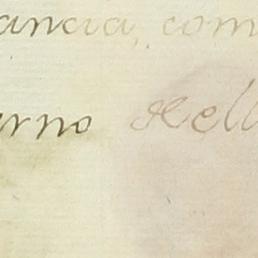 ancia, com
rno Hell